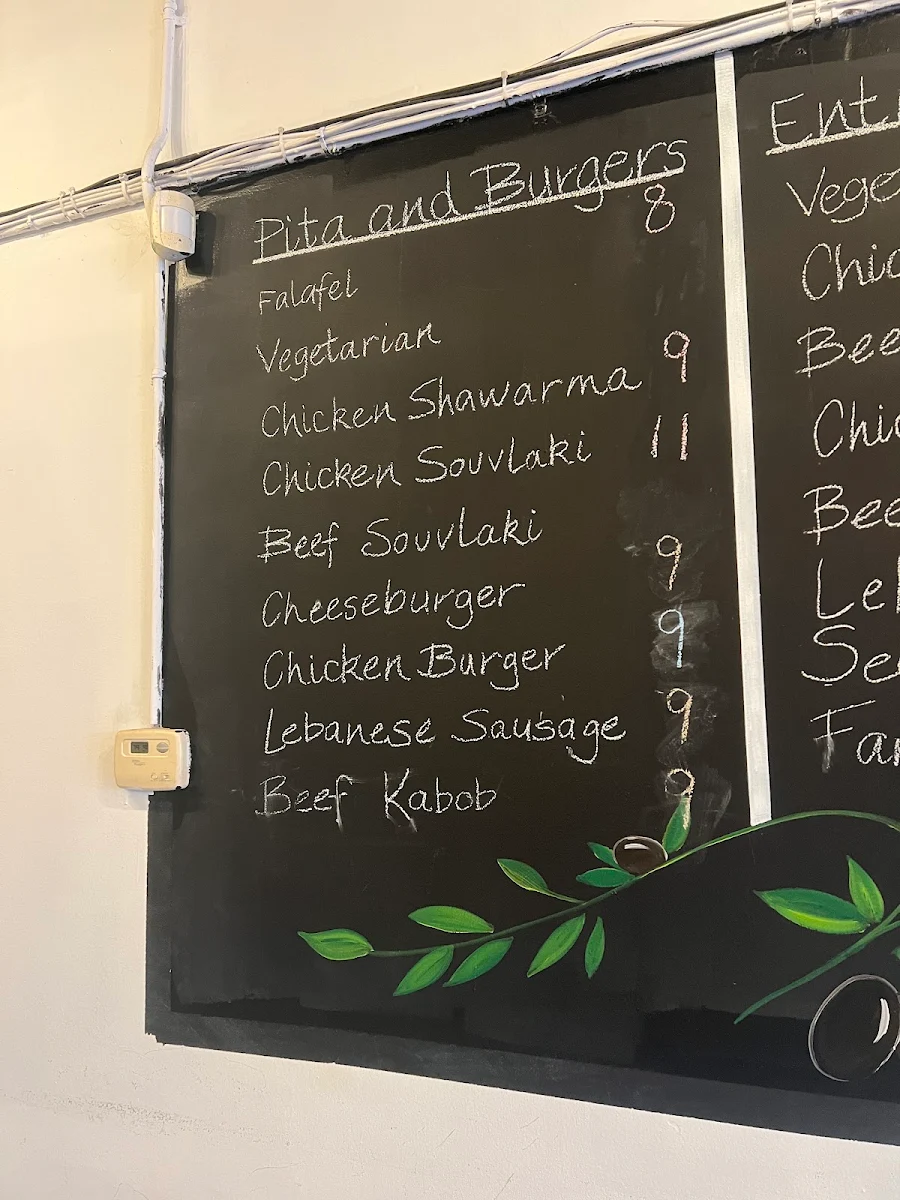 Pita and Burgers
8
Falafel
Vegetarian
Chicken Shawarma 9
Chicken Souvlaki 11
Beef Souvlaki
Cheeseburger 9
Chicken Burger 9
Lebanese Sausage 9
Beef Kabob 9
Ent
Vege
Chic
Bee
Chic
Bee
Leb
Se
Fa